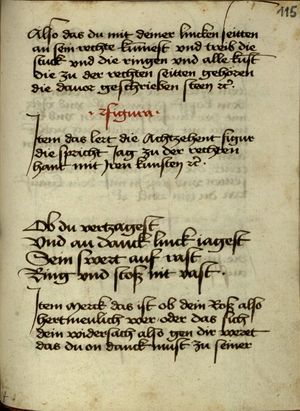 115
Also das du mit deiner lincken seitten
an sein rechte kumest vnd treib die
stuck vnd die ringen vnd alle kust
die zu der rechten seitten gehoren
die dauor geschrieben steen etc.
Figura
Item das lert die Achtzehent figur
die spricht Jag zu der rechten
hant mit Iren kunsten etc.
Ob du vertzagest
Vnd an danck linck iagest
Sein swert auf vast
Ring vnd stoß nit vast
Item Merck das ist ob dein Roß also
hertmeulich wer oder das sich
dein widersach also gen dir weret
das du on danck must zu seiner